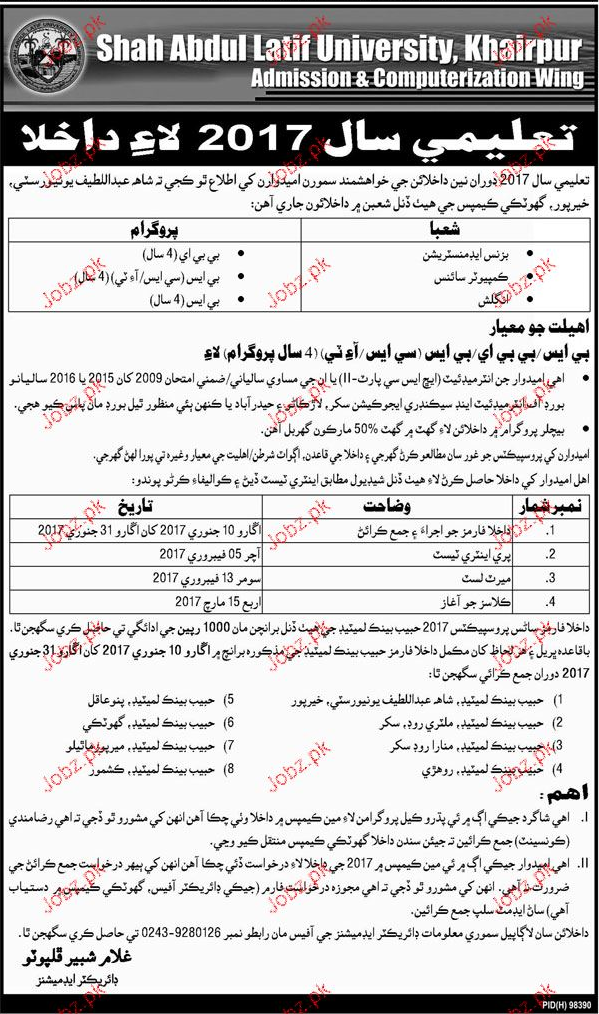 Shah Abdul Latif University, Khairpur
Admission & Computerization Wing
تعليمي سال 2017 لاءِ داخلا
تعليمي سال 2017 دوران نين داخلائن جي خواهشمند سمورن اميدوارن کي اطلاع ٿو ڪجي ته شاهه عبداللطيف يونيورسٽي،
خيرپور، گھوٽڪي ڪيمپس جي هيٺ ڏنل شعبن ۾ داخلائون جاري آهن:
شعبا پروگرام
• بزنس ايڊمنسٽريشن • بي بي اي (4 سال)
• ڪمپيوٽر سائنس • بي ايس (سي ايس/آءِ ٽي) (4 سال)
• انگلش • بي ايس (4 سال)
اهيلت جو معيار
بي ايس/بي بي اي/بي ايس (سي ايس/آءِ ٽي) (4 سال پروگرام) لاءِ
• اهي اميدوار جن انٽرميڊئيٽ (ايڇ ايس سي پارٽ-II) يا ان جي مساوي سالياني/ضمني امتحان 2009 کان 2015 يا 2016 ساليانو
بورڊ آف انٽرميڊئيٽ اينڊ سيڪنڊري ايجوڪيشن سکر، لاڙڪاڻي ۽ حيدرآباد يا ڪنهن ٻئي منظور ٿيل بورڊ مان پاس ڪيو هجي.
• بيچلر پروگرام ۾ داخلائن لاءِ گھٽ ۾ گھٽ 50% مارڪون گھربل آهن.
اميدوارن کي پروسپيڪٽس جو غور سان مطالعو ڪرڻ گھرجي ۽ داخلا جي قاعدن، اڳواٽ شرطن/اهليت جي معيار وغيره تي پورا لهڻ گھرجي.
اهل اميدوار کي داخلا حاصل ڪرڻ لاءِ هيٺ ڏنل شيڊيول مطابق اينٽري ٽيسٽ ڏيڻ ۽ ڪواليفاءِ ڪرڻو پوندو:
نمبر شمار وضاحت تاريخ
1. داخلا فارمز جو اجراءُ ۽ جمع ڪرائڻ اڱارو 10 جنوري 2017 کان اڱارو 31 جنوري 2017
2. پري اينٽري ٽيسٽ آچر 05 فيبروري 2017
3. ميرٽ لسٽ سومر 13 فيبروري 2017
4. ڪلاسز جو آغاز اربع 15 مارچ 2017
داخلا فارمز ساڻس پروسپيڪٽس 2017 حبيب بينڪ لميٽيڊ جي هيٺ ڏنل برانچن مان 1000 رپين جي ادائگي تي حاصل ڪري سگھجن ٿا.
باقاعده ڀريل ۽ هر لحاظ کان مڪمل داخلا فارمز حبيب بينڪ لميٽيڊ جي مذڪوره برانچ ۾ اڱارو 10 جنوري 2017 کان اڱارو 31 جنوري
2017 دوران جمع ڪرائي سگھجن ٿا:
1) حبيب بينڪ لميٽيڊ، شاهه عبداللطيف يونيورسٽي، خيرپور 5) حبيب بينڪ لميٽيڊ، پنوعاقل
2) حبيب بينڪ لميٽيڊ، ملٽري روڊ، سکر 6) حبيب بينڪ لميٽيڊ، گھوٽڪي
3) حبيب بينڪ لميٽيڊ، منارا روڊ سکر 7) حبيب بينڪ لميٽيڊ، ميرپور ماٿيلو
4) حبيب بينڪ لميٽيڊ، روهڙي 8) حبيب بينڪ لميٽيڊ، ڪشمور
اهم:
I. اهي شاگرد جيڪي اڳ ۾ ئي پڌرو ڪيل پروگرامن لاءِ مين ڪيمپس ۾ داخلا وٺي چڪا آهن انهن کي مشورو ٿو ڏجي ته اهي رضامندي
(ڪونسينٽ) جمع ڪرائين ته جيئن سندن داخلا گھوٽڪي ڪيمپس منتقل ڪيو وڃي.
II. اهي اميدوار جيڪي اڳ ۾ ئي مين ڪيمپس ۾ 2017 جي داخلا لاءِ درخواست ڏئي چڪا آهن انهن کي ٻيهر درخواست جمع ڪرائڻ جي
ضرورت نه آهي. انهن کي مشورو ٿو ڏجي ته اهي مجوزه درخواست فارم (جيڪي ڊائريڪٽر آفيس، گھوٽڪي ڪيمپس ۾ دستياب
آهي) ساڻ ايڊمٽ سلپ جمع ڪرائين.
داخلائن سان لاڳاپيل سموري معلومات ڊائريڪٽر ايڊميشنز جي آفيس مان رابطو نمبر 0243-9280126 تي حاصل ڪري سگھجن ٿا.
غلام شبير ڦلپوٽو
ڊائريڪٽر ايڊميشنز
PID(H) 98390
Jobz.pk